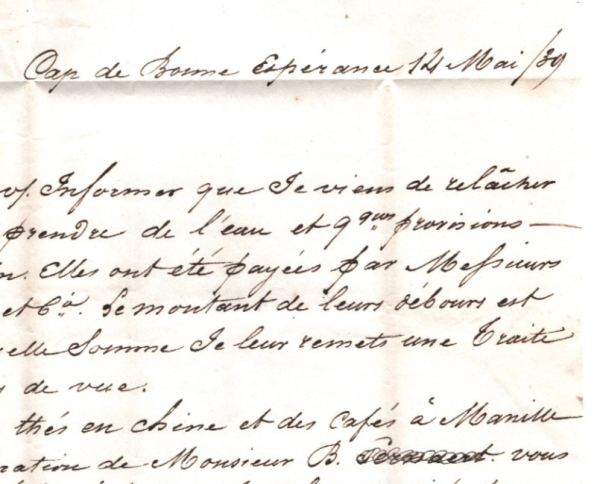 Cap de Bonne Espérance 14 Mai /39
v/. Informer que Je viens de relâcher
prendre de l'eau et qques provisions —
n. Elles ont été payées par Messieurs
et Co. Le montant de leurs débours est
elle Somme Je leur remets une Traite
s de vue.
thés en chine et des Cafés à Manille
ration de Monsieur B. vous